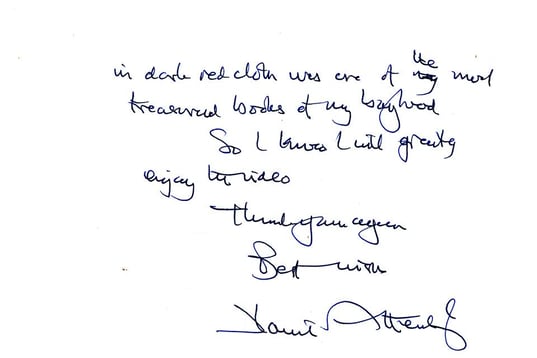 in dark red cloth was one of the most
treasured books of my boyhood
So I know I will greatly
enjoy the video
Thank you again
Best wishes
David Attenborough